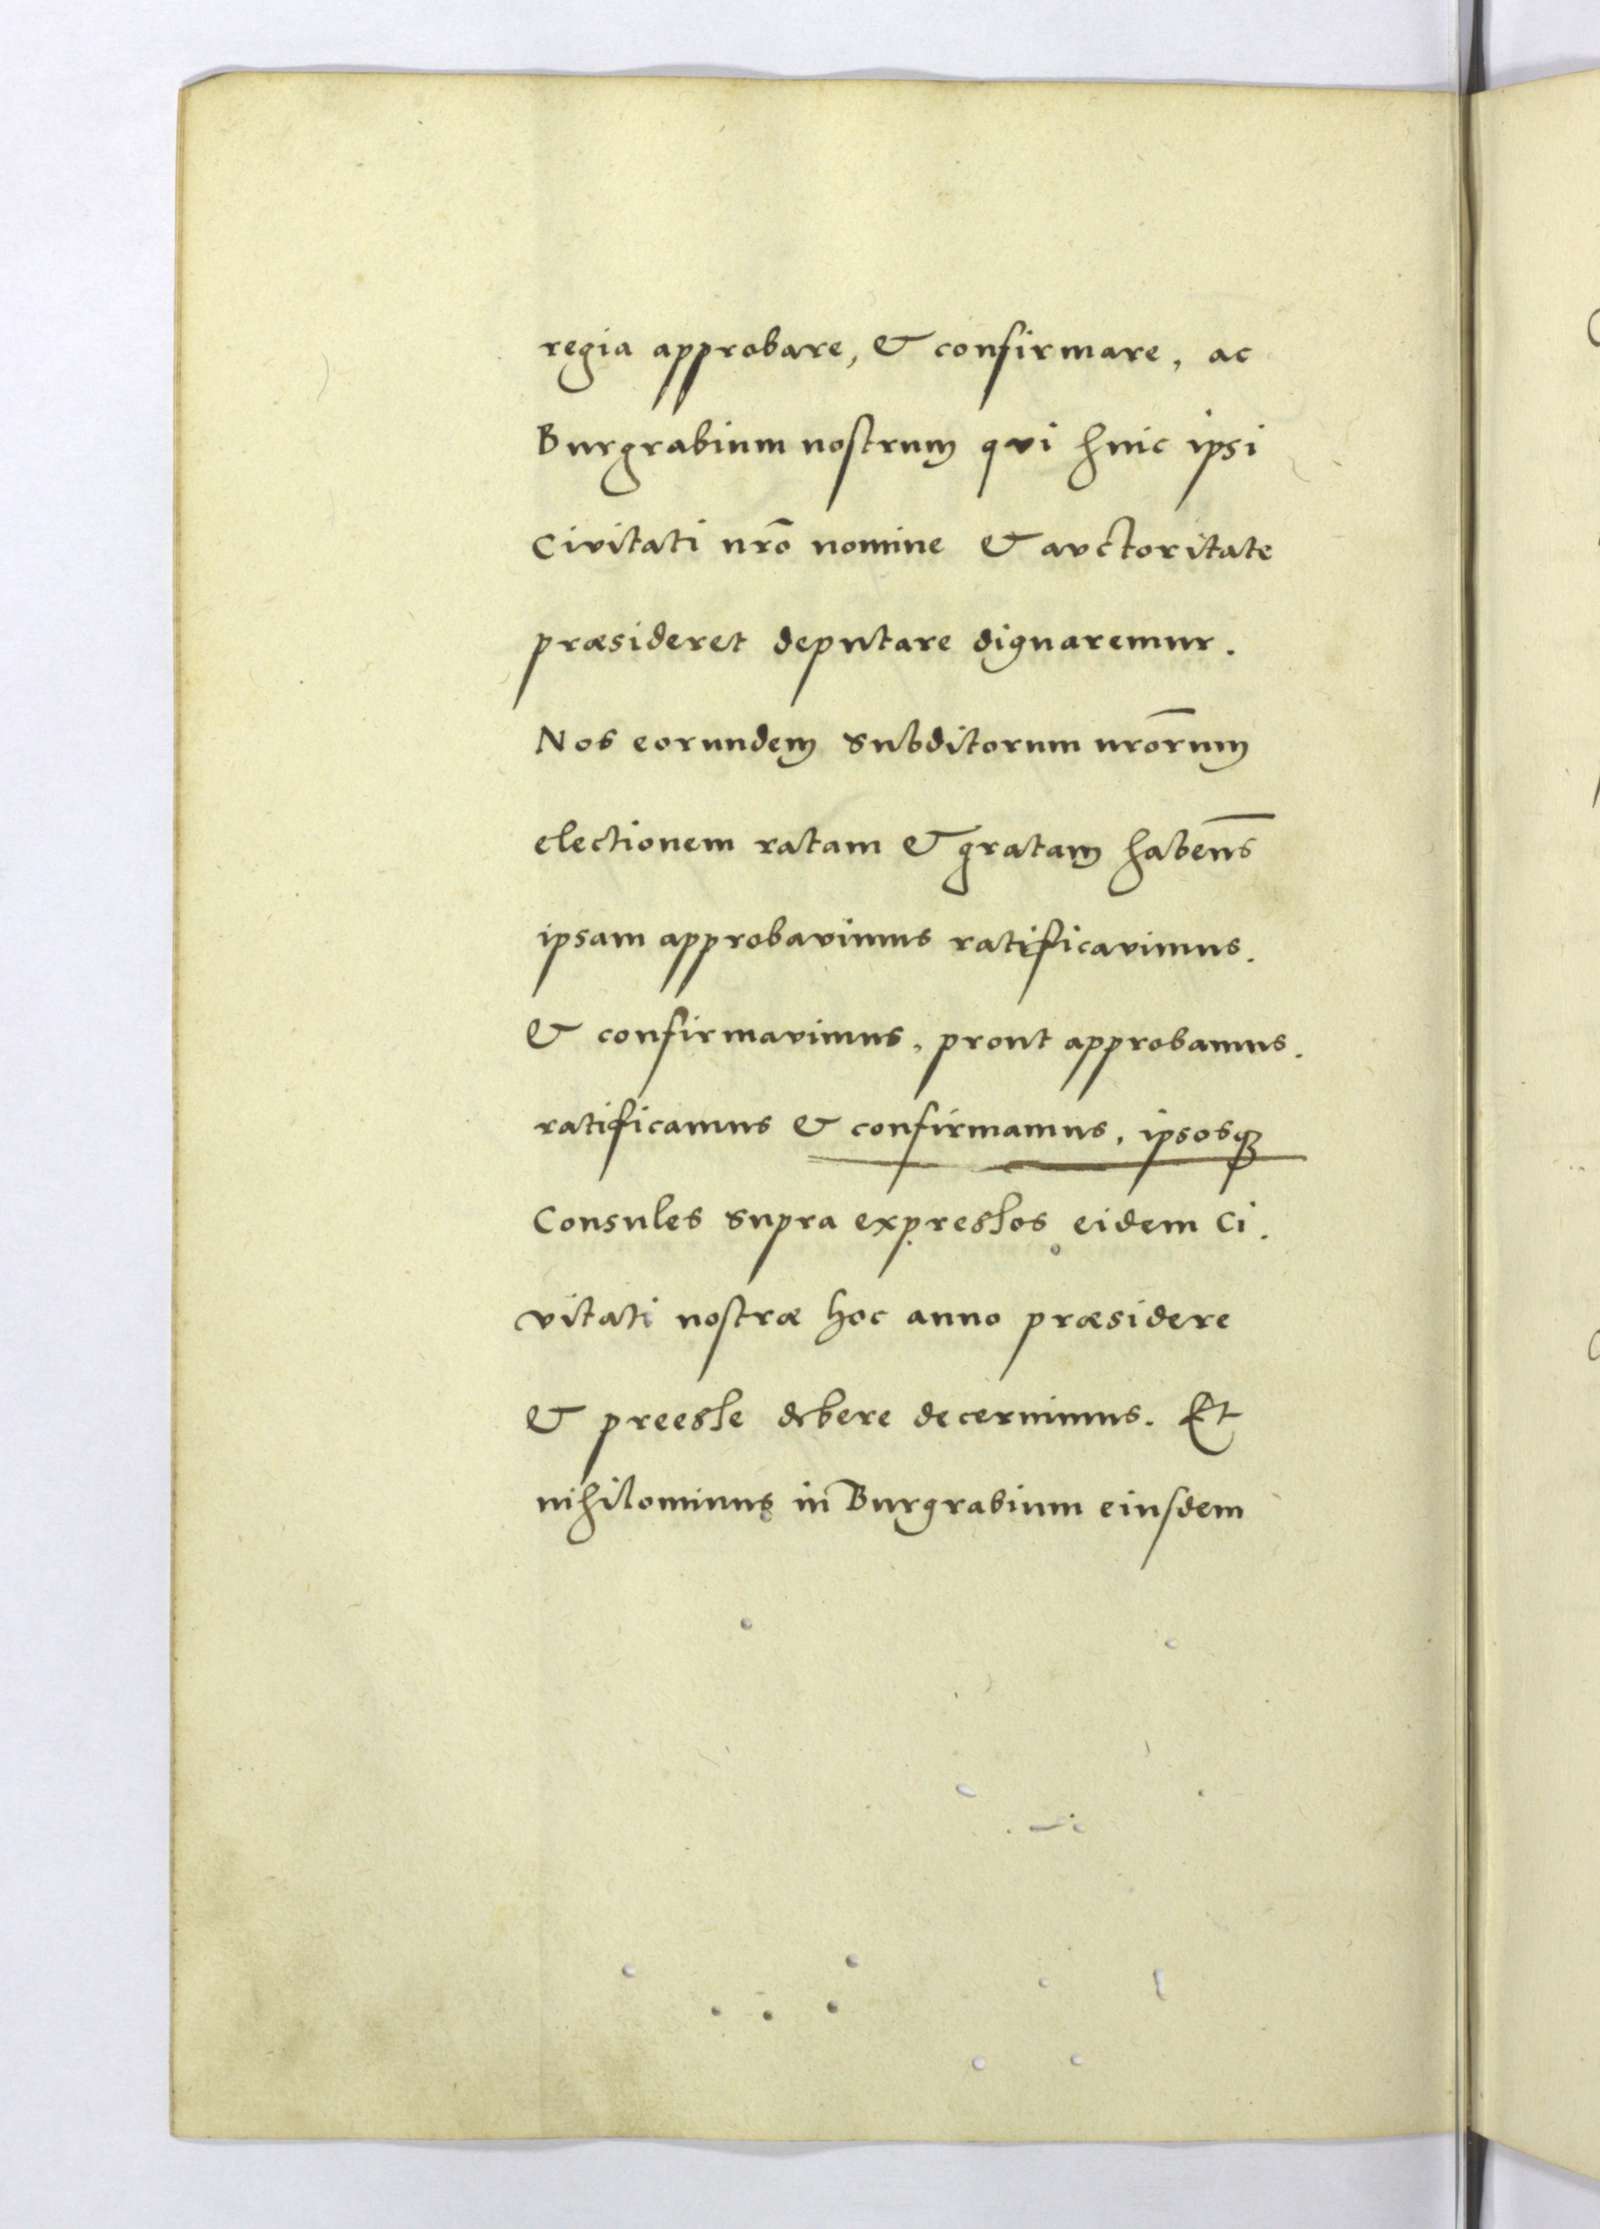 regia approbare, & confirmare, ac
Burgrabium nostrum qui huic ipsi
Civitati nrō nomine & auctoritate
præsideret deputare dignaremur.
Nos eorundem subditorum nrōrum
electionem ratam & gratam habēns
ipsam approbavimus ratificavimus.
& confirmavimus, prout approbamus.
ratificamus & confirmamus, ipsosq́ꝫ
Consules supra expressos eidem Ci.
vitati nostræ hoc anno præsidere
& preesse debere decernimus. Et
nihilominus in Burgrabium eiusdem